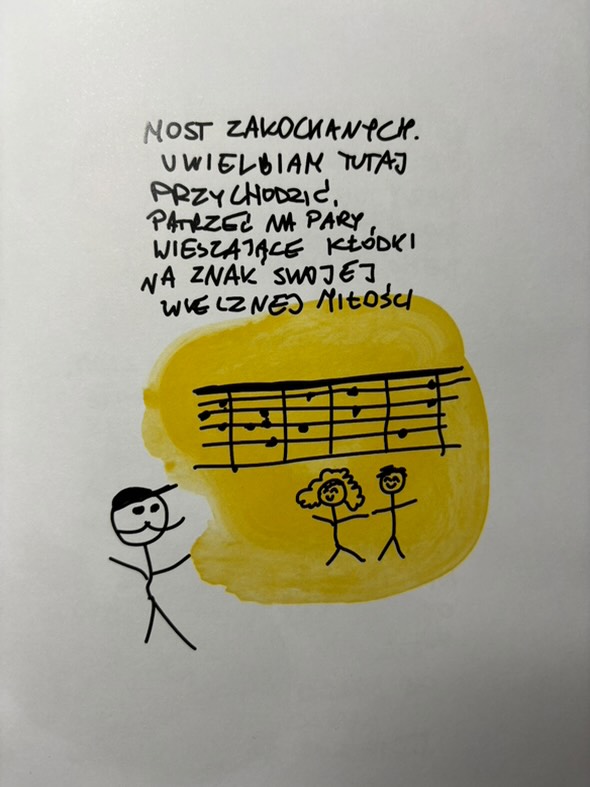 MOST ZAKOCHANYCH.
UWIELBIAM TUTAJ
PRZYCHODZIĆ,
PATRZEĆ NA PARY,
WIESZAJĄCE KŁÓDKI
NA ZNAK SWOJEJ
WIECZNEJ MIŁOŚCI